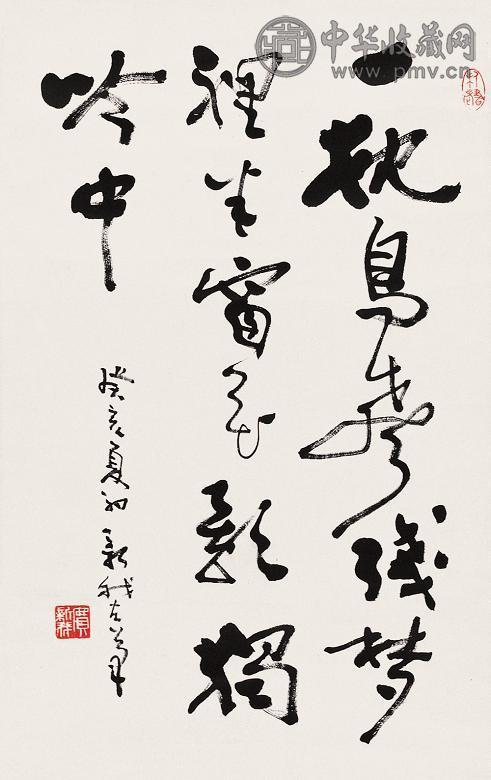 一枕鸟声残梦
裡半窗花影独
吟中
癸亥夏初新我左笔
费新我
中华收藏网
www.pmv.cn